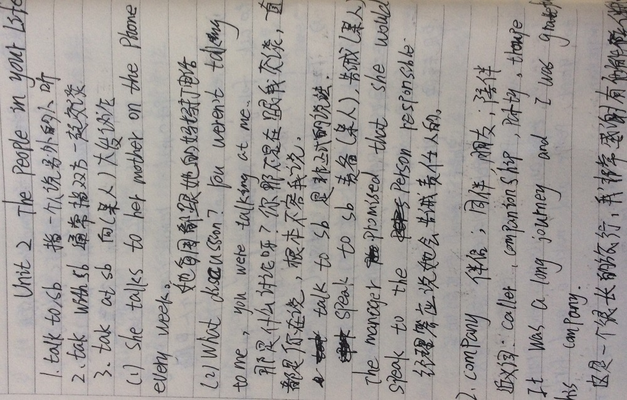 Unit 2 The People in your Life
1. talk to sb 指一个人说另外的人听
2. tak with sb 通常指双方一起交谈
3. tak at sb 向(某人)大发议论
(1) she talks to her mother on the Phone
every week.
她每周都跟她的妈妈打电话
(2) What discusson? you weren't talking
to me, you were talking at me.
那是什么讨论呀?你那不是在跟我交谈,
都是你在说,根本不答我说.
talk to sb 是非正式的说法.
speak to sb 责备(某人),告诫(某人)
The manager promised that she would
speak to the person responsible.
经理答应说她会告诫责任人的.
2. company 伴侣;同伴 朋友;陪伴
近义词: caller, companionship, party, troupe
It was a long journey and I was
his company.
这是一个很长的旅行,我非常感谢有他的